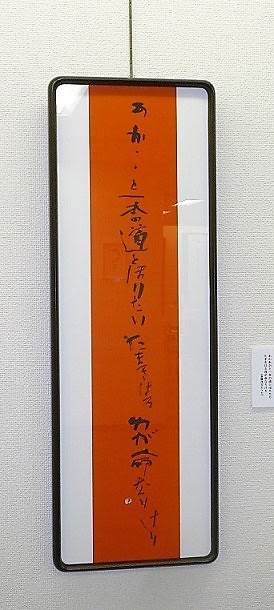 あかあかと一本の道とほりたり たまきはる わが命なりけり